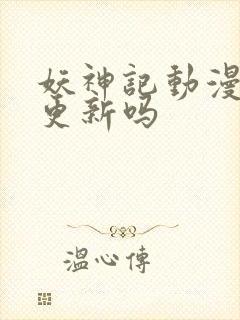 妖神記動漫
更新吗
溫心傳